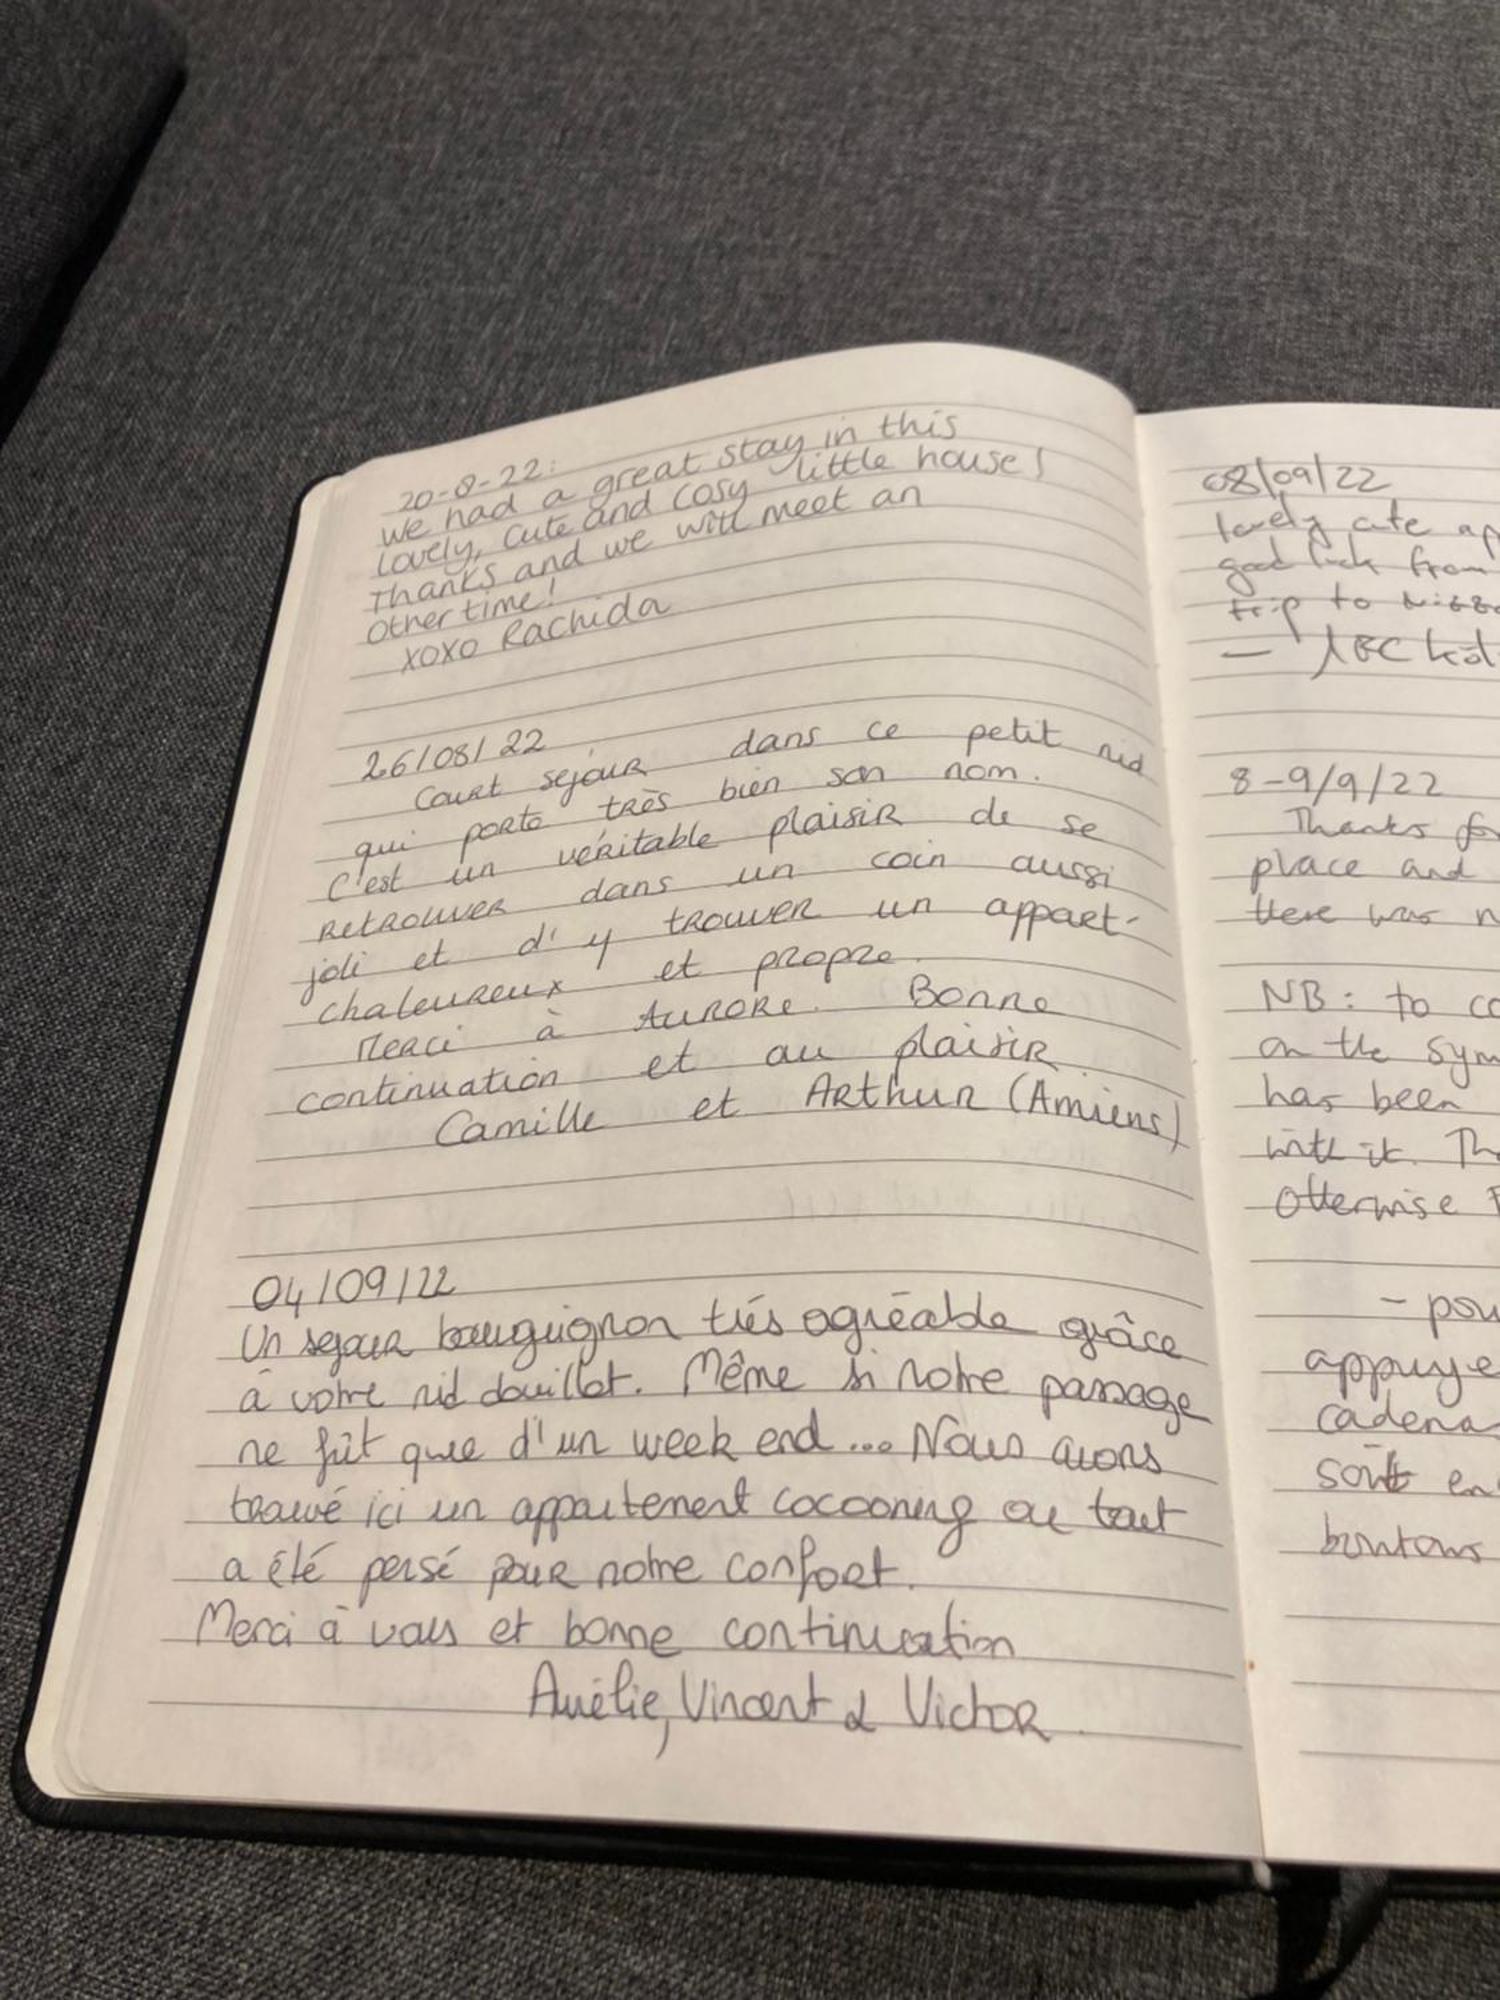 20-8-22:
we had a great stay in this
lovely, cute and cosy little house!
Thanks and we will meet an
other time!
xoxo Rachida
26/08/22
Court séjour dans ce petit nid
qui porte très bien son nom.
C'est un véritable plaisir de se
retrouver dans un coin aussi
joli et d'y trouver un appart-
chaleureux et propre.
Merci à Aurore. Bonne
continuation et au plaisir
Camille et Arthur (Amiens)
04/09/22
Un sejour bourguignon très agréable grâce
à votre nid douillet. Même si notre passage
ne fût que d'un week end... Nous avons
trouvé ici un appartement cocooning ou tout
a été pensé pour notre confort.
Merci à vous et bonne continuation
Aurélie, Vincent & Victor
08/09/22
lovely cute ap
good luck from
trip to
8-9/9/22
Thanks for
place and
there was n
NB: to co
on the sym
has been
with it. Th
otherwise
- pou
appuye
cadena
sont en
boutons